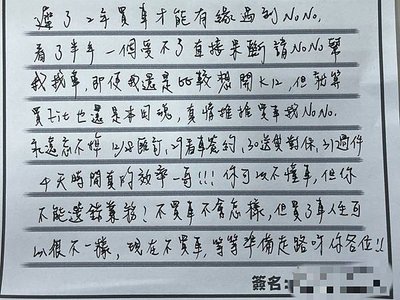 遲了2年買車才能有緣遇到NoNo,
看了半年一個受不了直接果斷請NoNo幫
我找車,即便我還是比較想開K12,但對算
買Fit也還是本田魂,真情推推買車找NoNo.
永遠忘不掉12/28匯訂,29看車簽約,30送雙對保,31過件
4天時間真的效率一百!!!你可以不懂車,但你
不能選錯業務!不買車不會怎樣,但買了車人生可
以很不一樣,現在不買車,等等準備走路呀你各位!!
簽名: